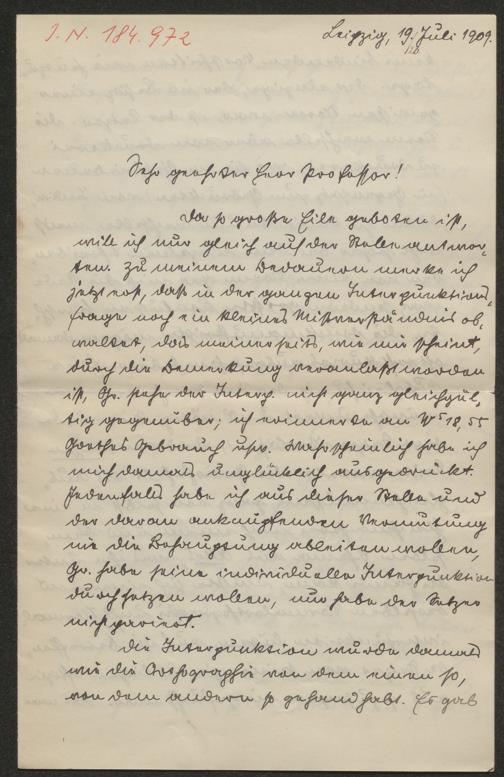 I. N. 184.972
Leipzig, 19. Juli 1909.
Sehr geehrter Herr Professor!
Da so große Eile geboten ist,
will ich nur gleich auf der Stelle antwor-
ten. Zu meinem Bedauern merke ich
jetzt erst, daß in der ganzen Interpunktions-
frage noch ein kleines Mißverständnis ob-
waltet, das meinerseits, wie mir scheint,
durch die Bemerkung veranlaßt worden
ist, Gr. stehe der Interp. nicht ganz gleichgül-
tig gegenüber; ich erinnerte an W⁵ 18, 55
Goethes Gebrauch usw. Wahrscheinlich habe ich
mich damals unglücklich ausgedrückt.
Jedenfalls habe ich aus dieser Stelle und
der daran anknüpfenden Vermutung
nie die Behauptung ableiten wollen,
Gr. habe seine individuelle Interpunktion
durchsetzen wollen, nur habe der Setzer
nicht pariert.
Die Interpunktion wurde damals
wie die Orthographie von dem einen so,
von dem andern so gehandhabt. Es gab